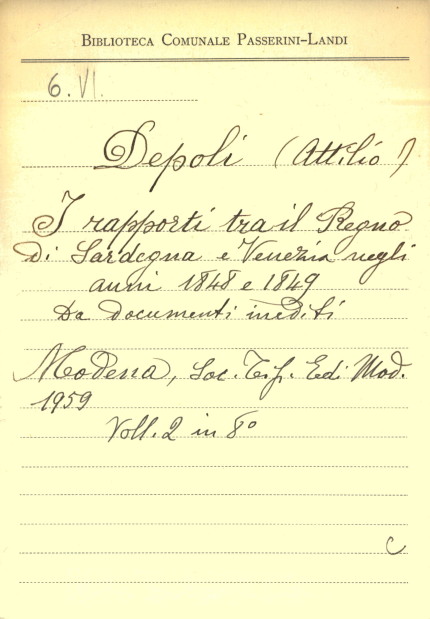 BIBLIOTECA COMUNALE PASSERINI-LANDI
6. VI.
Depoli (Attilio)
I rapporti tra il Regno
di Sardegna e Venezia negli
anni 1848 e 1849
Da documenti inediti
Modena, Soc. Tip. Edi. Mod.
1959
Voll. 2 in 8º
C